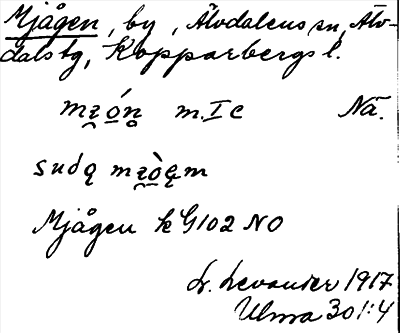 Mjågen, by, Älvdalens sn, Älv-
dals tg, Kopparbergs l.
m.I c Nä.
Mjågen k G102 NO
L. Levander 1917
Ulma 301:4